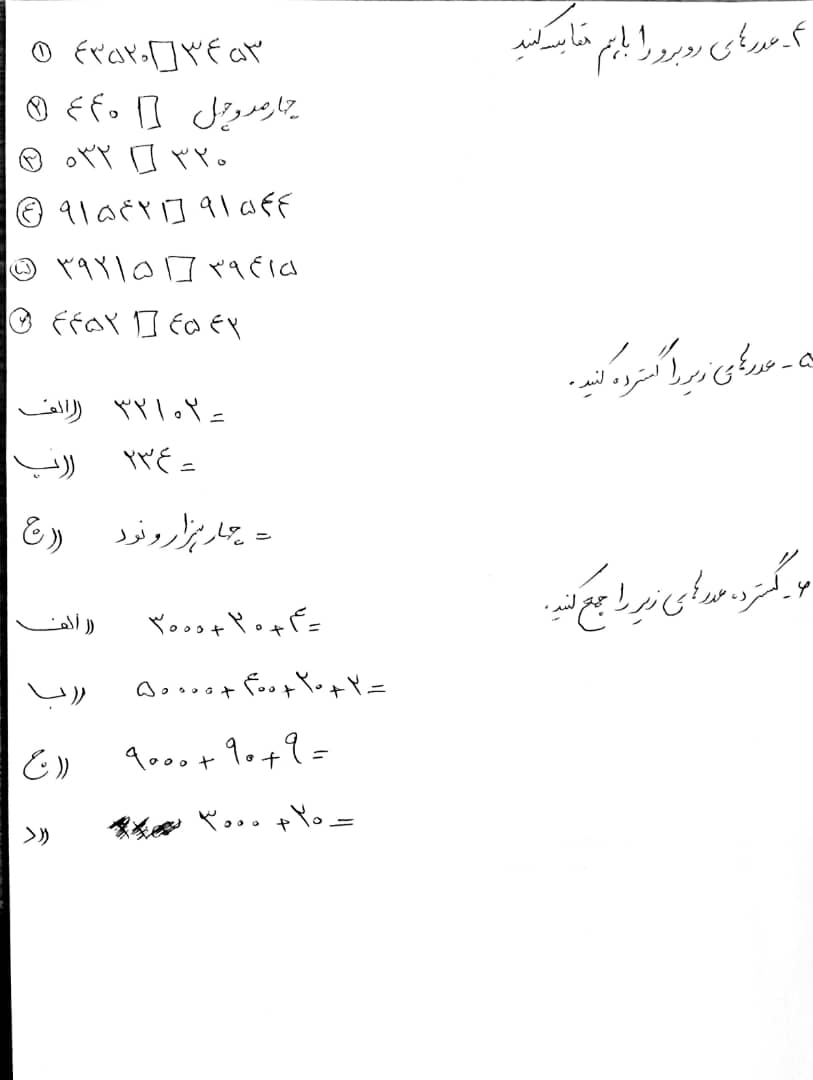 ۴ـ عددهای روبرو را باهم مقایسه کنید
① ۴۳۵۲۰ □ ۳۴۵۳
② ۴۴۰ □ چهارصدوچهل
③ ۰۳۲ □ ۳۲۰
④ ۹۱۵۴۲ □ ۹۱۵۴۴
⑤ ۳۹۲۱۵ □ ۳۹۴۱۵
⑥ ۴۴۵۲ □ ۴۵۴۲
۵ ـ عددهای زیر را گسترده کنید.
الف)) ۳۲۱۰۲ =
ب)) ۲۳۴ =
ج)) چهارهزار و نود =
۶ـ گسترده عددهای زیر را جمع کنید.
الف)) ۳۰۰۰+۲۰+۴=
ب)) ۵۰۰۰۰+۴۰۰+۲۰+۲=
ج)) ۹۰۰۰+۹۰+۹=
د)) ۳۰۰۰+۲۰=